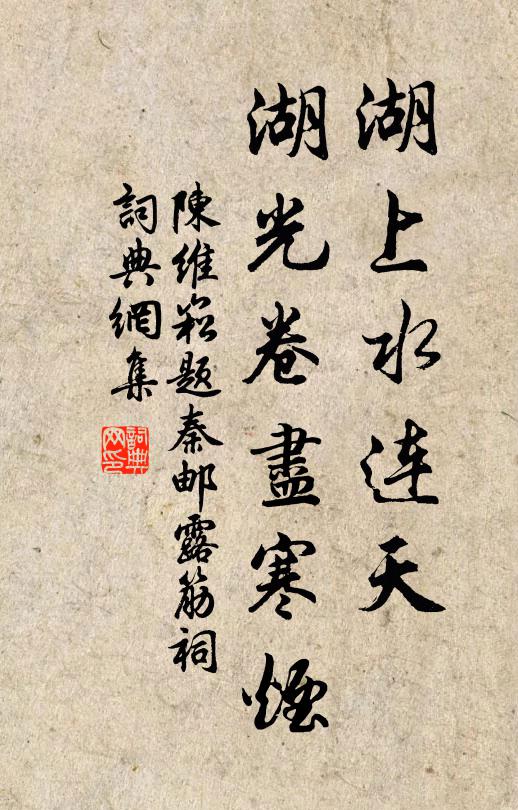 湖上水连天
湖光卷盡寒煙
陳維崧題秦邮露筋祠
詞典網集
詞典网印